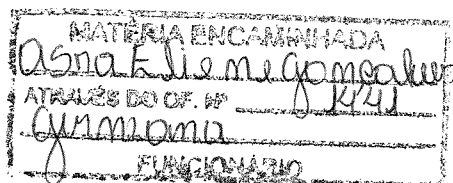 MATÉRIA ENCAMINHADA
a Sra Eliene Gonçalves
ATRAVÉS DO OF. Nº 1441
FUNCIONÁRIO